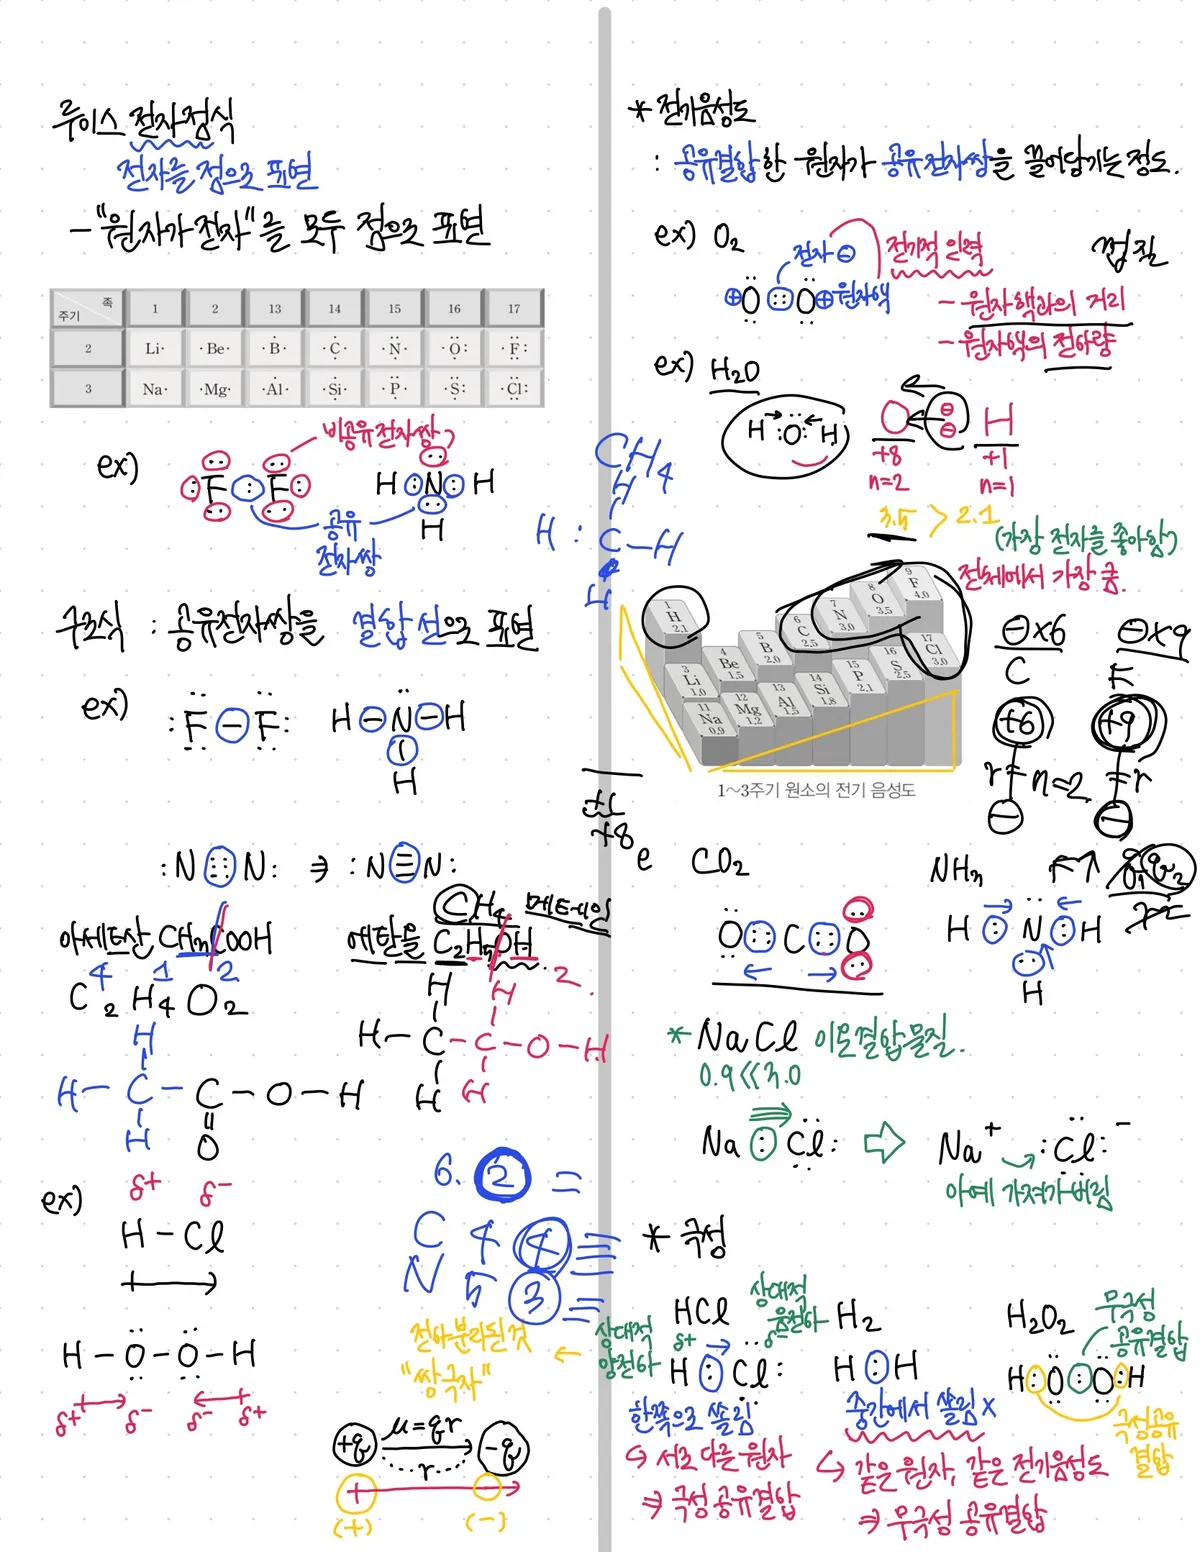 루이스 전자점식
전자를 점으로 표현
- "원자가 전자"를 모두 점으로 표현
족
주기
1 2 13 14 15 16 17
2 Li· ·Be· ·B· ·C· ·N· ·O: ·F:
3 Na· ·Mg· ·Al· ·Si· ·P· ·S: ·Cl:
비공유전자쌍
ex) F F H N H
H
공유
전자쌍
구조식 : 공유전자쌍을 결합선으로 표현
ex) :F-F: H-N-H
H
:N N: ⇒ :N≡N:
아세트산 CH3COOH
4 1 2
C2H4O2
H
H-C-C-O-H
H O
CH4 메테인
에탄올 C2H5OH
2.
H H
H-C-C-O-H
H H
ex) δ+ δ-
H-Cl
H-O-O-H
δ+ δ- δ- δ+
6. 2 =
C 4 4 ≡
N 5 3 =
전하분리된것 ←
"쌍극자"
+q μ=qr -q
r
(+) (-)
* 전기음성도
: 공유결합한 원자가 공유전자쌍을 끌어당기는 정도.
ex) O2
전자⊖ 전기적 인력
껍질
⊕O::O⊕원자핵
- 원자핵과의 거리
- 원자핵의 전하량
ex) H2O
H :O: H
O ⊖⊖ H
+8 +1
n=2 n=1
3.5 > 2.1
(가장 전자를 좋아함)
전체에서 가장 큼.
CH4
H
H : C - H
H
1 H 2.1
3 Li 1.0
4 Be 1.5
5 B 2.0
6 C 2.5
7 N 3.0
8 O 3.5
9 F 4.0
11 Na 0.9
12 Mg 1.2
13 Al 1.5
14 Si 1.8
15 P 2.1
16 S 2.5
17 Cl 3.0
1~3주기 원소의 전기 음성도
⊖×6 ⊖×9
C F
+6 +9
r n=2 r
+8
e CO2
O::C::O
NH3
H : N : H
H
* NaCl 이온결합물질.
0.9≪3.0
Na : Cl: ⇨ Na+ :Cl:-
아예 가져가버림
* 극성
HCl
상대적
음전하
상대적
양전하
δ+ → δ-
H : Cl:
한쪽으로 쏠림
↳ 서로 다른 원자
⇒ 극성 공유결합
H2
H : H
중간에서 쏠림 X
↳ 같은 원자, 같은 전기음성도
⇒ 무극성 공유결합
H2O2
무극성
공유결합
H:O:O:H
극성공유
결합